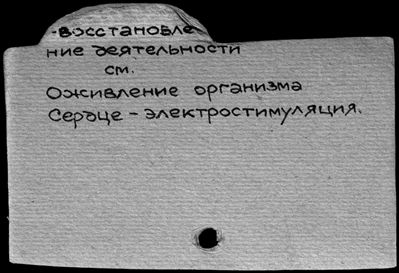 -восстановле
ние деятельности
см.
Оживление организма
Сердце - электростимуляция.